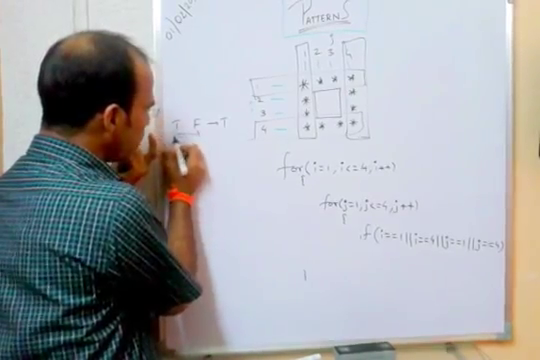 01/02/20
PATTERNS
j
1 2 3 4
* * * *
2 * *
3 * *
4 * * * *
T F → T
for(i=1, i<=4, i++)
{
for(j=1, j<=4, j++)
{
if(i==1||i==4||j==1||j==4)